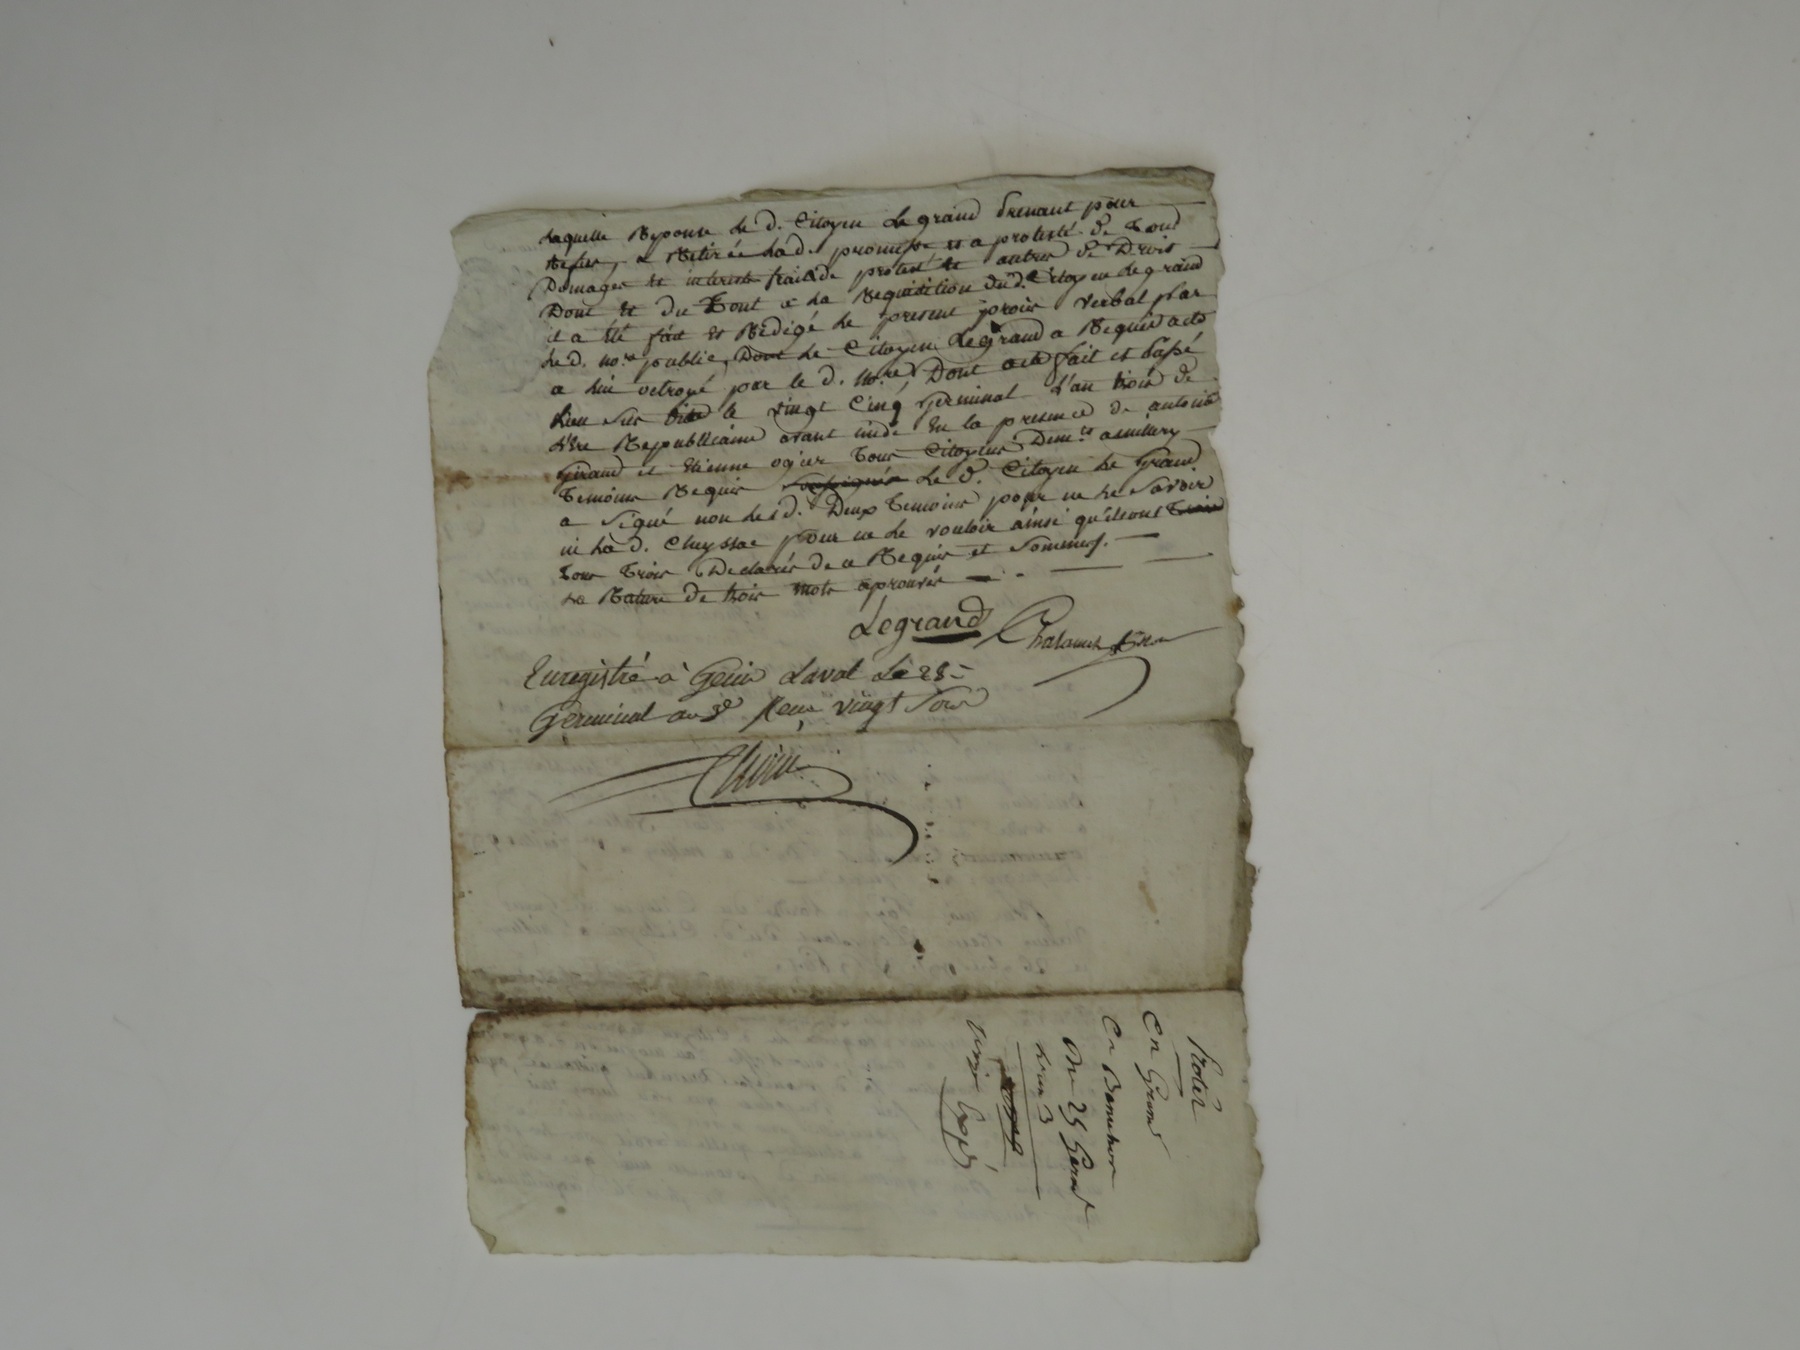 Laquelle Reponse le d. Citoyen Le grand Prenant pour
Refus, a Retirée la d. promesse et a protesté de Tous
Domages et interest frais de protest et autres de Droit
Dont et du Tout a la Requisition du d. Citoyen Le grand
il a été fait et Redigé le present procès verbal par
le d. no.re public, Dont le Citoyen Legrand a Requis acte
a lui octroyé par le d. no.re, Dont acte fait et Passé
Lieu sus dit le vingt Cinq Germinal L'an trois de
L'Ere Republicaine avant midi En la presence de antoine
Giraud et Etienne ogier Tous Citoyens Dem.ts
Temoins Requis soussignés Le d. Citoyen Le Grand
a Signé non les d. Deux Temoins pour ne le Savoir
ni la d. Cheyssac pour ne le vouloir ainsi qu'ils ont
Tous Trois Declarés de ce Requis et Sommés.
La Rature de trois mots aprouvés
Legrand Chalamet
Enregistré à Genis Laval Le 28
Germinal an 3e Reçu vingt Sous
Protêt
Cn Grand
Du 25 Germ.l
L'an 3